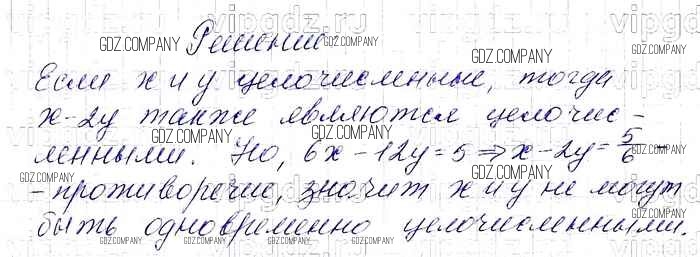 Решение
Если x и y целочисленные, тогда
x-2y также являются целочис-
ленными. Но, 6x-12y=5 ⇒ x-2y=5/6 -
- противоречие, значит x и y не могут
быть одновременно целочисленными.
GDZ.COMPANY
vipgdz.ru